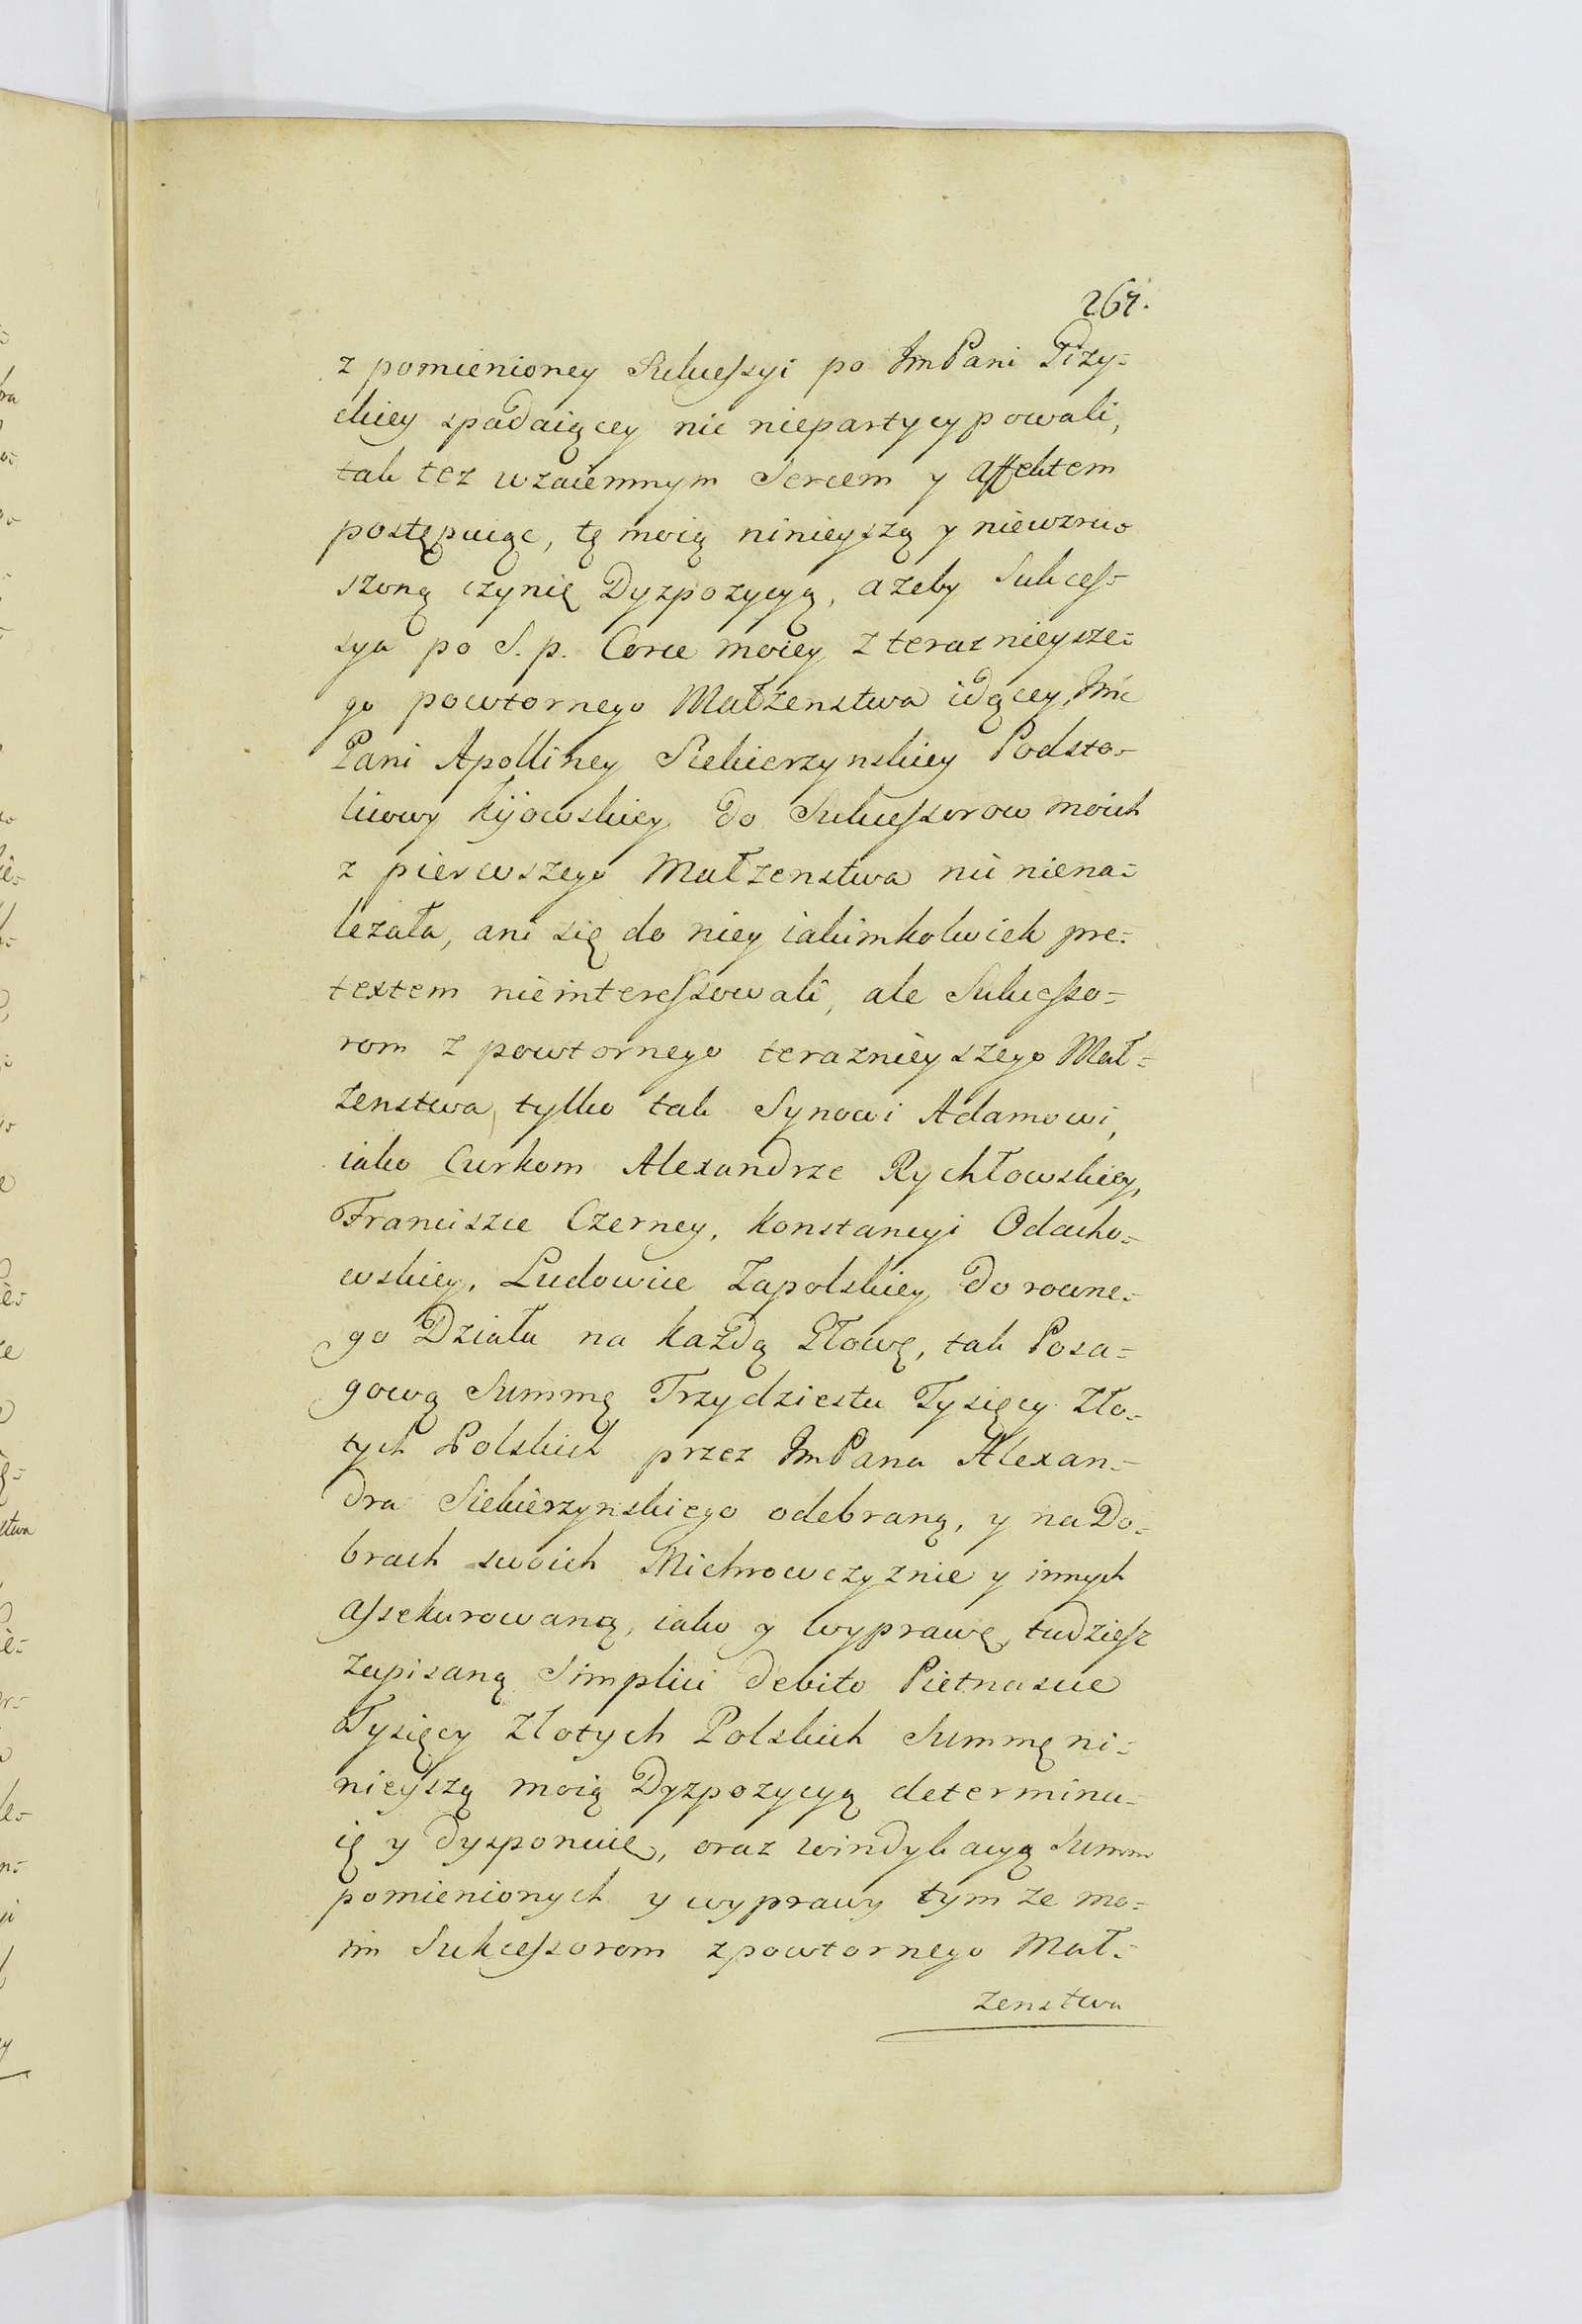 267.
z pomienioney Sukcessyi po JmPani Giży-
ckiey spadaiącey nic niepartycypowali,
tak tez wzaiemnym Sercem y affektem
postępuiąc, tę moią ninieyszą y niewzru-
szoną czynię Dyzpozycyą, azeby Sukces-
sya po S. p. Corce moiey z teraznieysze-
go powtornego Małzenstwa idącey, Jmc
Pani Apolliney Siekierzynskiey Podsto-
liowy kijowskiey do Sukcessorow moich
z pierwszego Małzenstwa nic niena-
lezała, ani się do niey iakimkolwiek pre-
textem nieinteressowali, ale Sukcesso-
rom z powtornego teraznieyszego Mał-
zenstwa, tylko tak Synowi Adamowi,
iako Curkom Alexandrze Rychłowskiey,
Franciszce Czerney, Konstancyi Odacho-
wskiey, Ludowice Zapolskiey do rowne-
go Działu na każdą Głowę, tak Posa-
gową Summę Trzydziestu Tysięcy Zło-
tych Polskich przez JmPana Alexan-
dra Siekierzynskiego odebraną, y na Do-
brach swoich Michrowczyznie y innych
assekurowaną, iako y wyprawę, tudziesz
zapisaną Simplici debito Pietnascie
Tysięcy Zlotych Polskich Summę ni-
nieyszą moią Dyzpozycyą determinu-
ię y dysponuię, oraz windykacyą Summ
pomienionych y wyprawy tym ze mo-
im Sukcessorom z powtornego Mał-
zenstwa